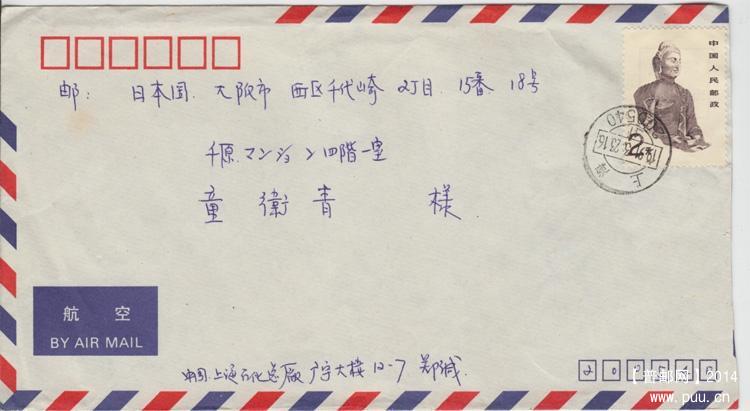 中国人民邮政
邮： 日本国. 大阪市 西区千代崎 2丁目. 15番 18号
千原.マンション四階一室
童衛青 様
上海
航 空
BY AIR MAIL
中国.上海石化总厂 大楼 12-7
【普邮网】2014
www.puu.cn